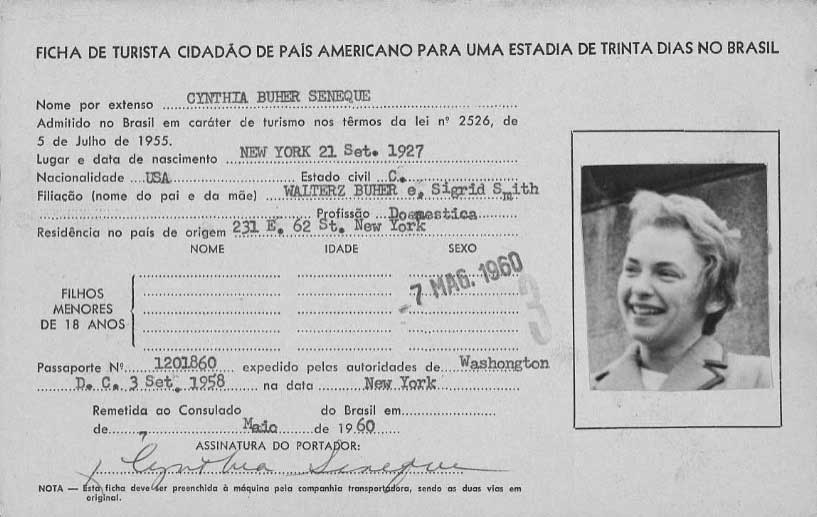 FICHA DE TURISTA CIDADÃO DE PAÍS AMERICANO PARA UMA ESTADIA DE TRINTA DIAS NO BRASIL
Nome por extenso CYNTHIA BUHER SENEQUE
Admitido no Brasil em caráter de turismo nos têrmos da lei nº 2526, de
5 de Julho de 1955.
Lugar e data de nascimento NEW YORK 21 Set. 1927
Nacionalidade USA Estado civil C.
Filiação (nome do pai e da mãe) WALTERZ BUHER e, Sigrid Smith
Profissão Doemestica
Residência no país de origem 231 E. 62 St. New York
NOME IDADE SEXO
7 MAG. 1960
3
FILHOS
MENORES
DE 18 ANOS
Passaporte Nº 1201860 expedido pelas autoridades de Washongton
D. C. 3 Set. 1958 na data New York
Remetida ao Consulado do Brasil em
de 7 Maio de 1960
ASSINATURA DO PORTADOR:
Cynthia Seneque
NOTA — Esta ficha deve ser preenchida à máquina pela companhia transportadora, sendo as duas vias em
original.